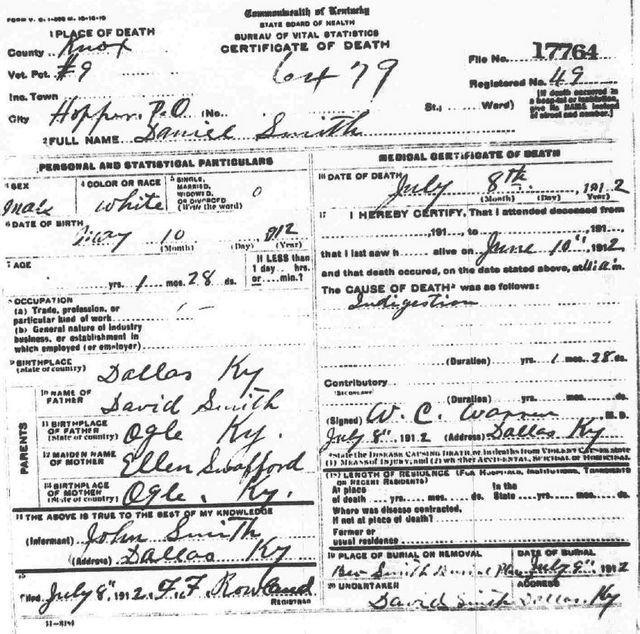 FORM V. S. 1-
Commonwealth of Kentucky
STATE BOARD OF HEALTH
BUREAU OF VITAL STATISTICS
CERTIFICATE OF DEATH
1 PLACE OF DEATH
County Knox
Vot. Pct. #9
6479
File No. 17764
Registered No. 49
Inc. Town
City Hopper P.O (No. St.; Ward)
[If death occurred in a hospital or institution, give its NAME instead of street and number.]
2 FULL NAME Daniel Smith
PERSONAL AND STATISTICAL PARTICULARS
3 SEX Male
4 COLOR OR RACE White
5 SINGLE, MARRIED, WIDOWED, OR DIVORCED (Write the word) 0
6 DATE OF BIRTH May 10 1912
(Month) (Day) (Year)
7 AGE
yrs. 1 mos. 28 ds.
If LESS than 1 day hrs. or min.?
8 OCCUPATION
(a) Trade, profession, or particular kind of work
(b) General nature of industry business, or establishment in which employed (or employer)
9 BIRTHPLACE (State or country) Dallas Ky
PARENTS
10 NAME OF FATHER David Smith
11 BIRTHPLACE OF FATHER (State or country) Ogle Ky.
12 MAIDEN NAME OF MOTHER Ellen Swafford
13 BIRTHPLACE OF MOTHER (State or country) Ogle. Ky.
14 THE ABOVE IS TRUE TO THE BEST OF MY KNOWLEDGE
(Informant) John Smith
(Address) Dallas Ky
15
Filed July 8" 1912 F. F. Rowland
REGISTRAR
11-8191
MEDICAL CERTIFICATE OF DEATH
16 DATE OF DEATH July 8th. 1912
(Month) (Day) (Year)
17 I HEREBY CERTIFY, That I attended deceased from
191 , to 191 ,
that I last saw h alive on June 10" 1912
and that death occured, on the date stated above, at m.
The CAUSE OF DEATH* was as follows:
Indigestion
(Duration) yrs. 1 mos. 28 ds.
Contributory
(SECONDARY)
(Duration) yrs. mos. ds.
(Signed) W. C. Warren M.D.
July 8" 191 2 (Address) Dallas Ky
*State the DISEASE CAUSING DEATH, or, in deaths from VIOLENT CAUSES state (1) MEANS OF INJURY; and (2) whether ACCIDENTAL, SUICIDAL, or HOMICIDAL
18 LENGTH OF RESIDENCE (FOR HOSPITALS, INSTITUTIONS, TRANSIENTS OR RECENT RESIDENTS)
At place of death yrs. mos. ds.
In the State yrs. mos. ds.
Where was disease contracted, if not at place of death?
Former or usual residence
19 PLACE OF BURIAL OR REMOVAL
Ben Smith
DATE OF BURIAL
July 9" 1912
20 UNDERTAKER
David Smith
ADDRESS
Dallas. Ky